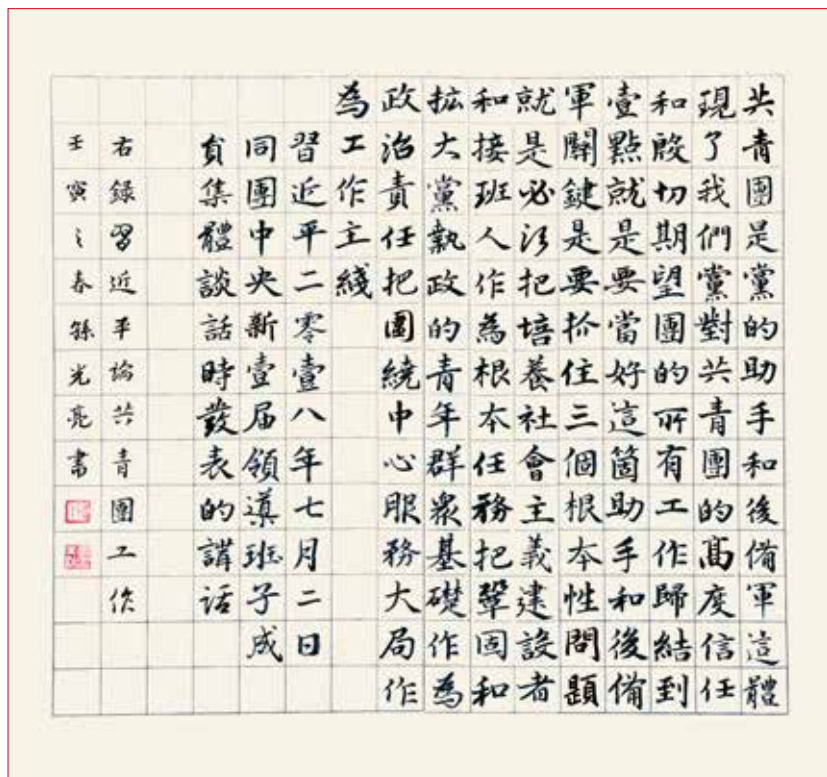 共青團是黨的助手和後備軍這體
現了我們黨對共青團的高度信任
和殷切期望團的所有工作歸結到
壹點就是要當好這箇助手和後備
軍關鍵是要抓住三個根本性問題
就是必須把培養社會主義建設者
和接班人作為根本任務把鞏固和
拡大黨執政的青年群衆基礎作為
政治責任把圍繞中心服務大局作
為工作主綫
習近平二零壹八年七月二日
同團中央新壹届領導班子成
員集體談話時發表的講話
右録習近平論共青團工作
壬寅之春孫光亮書